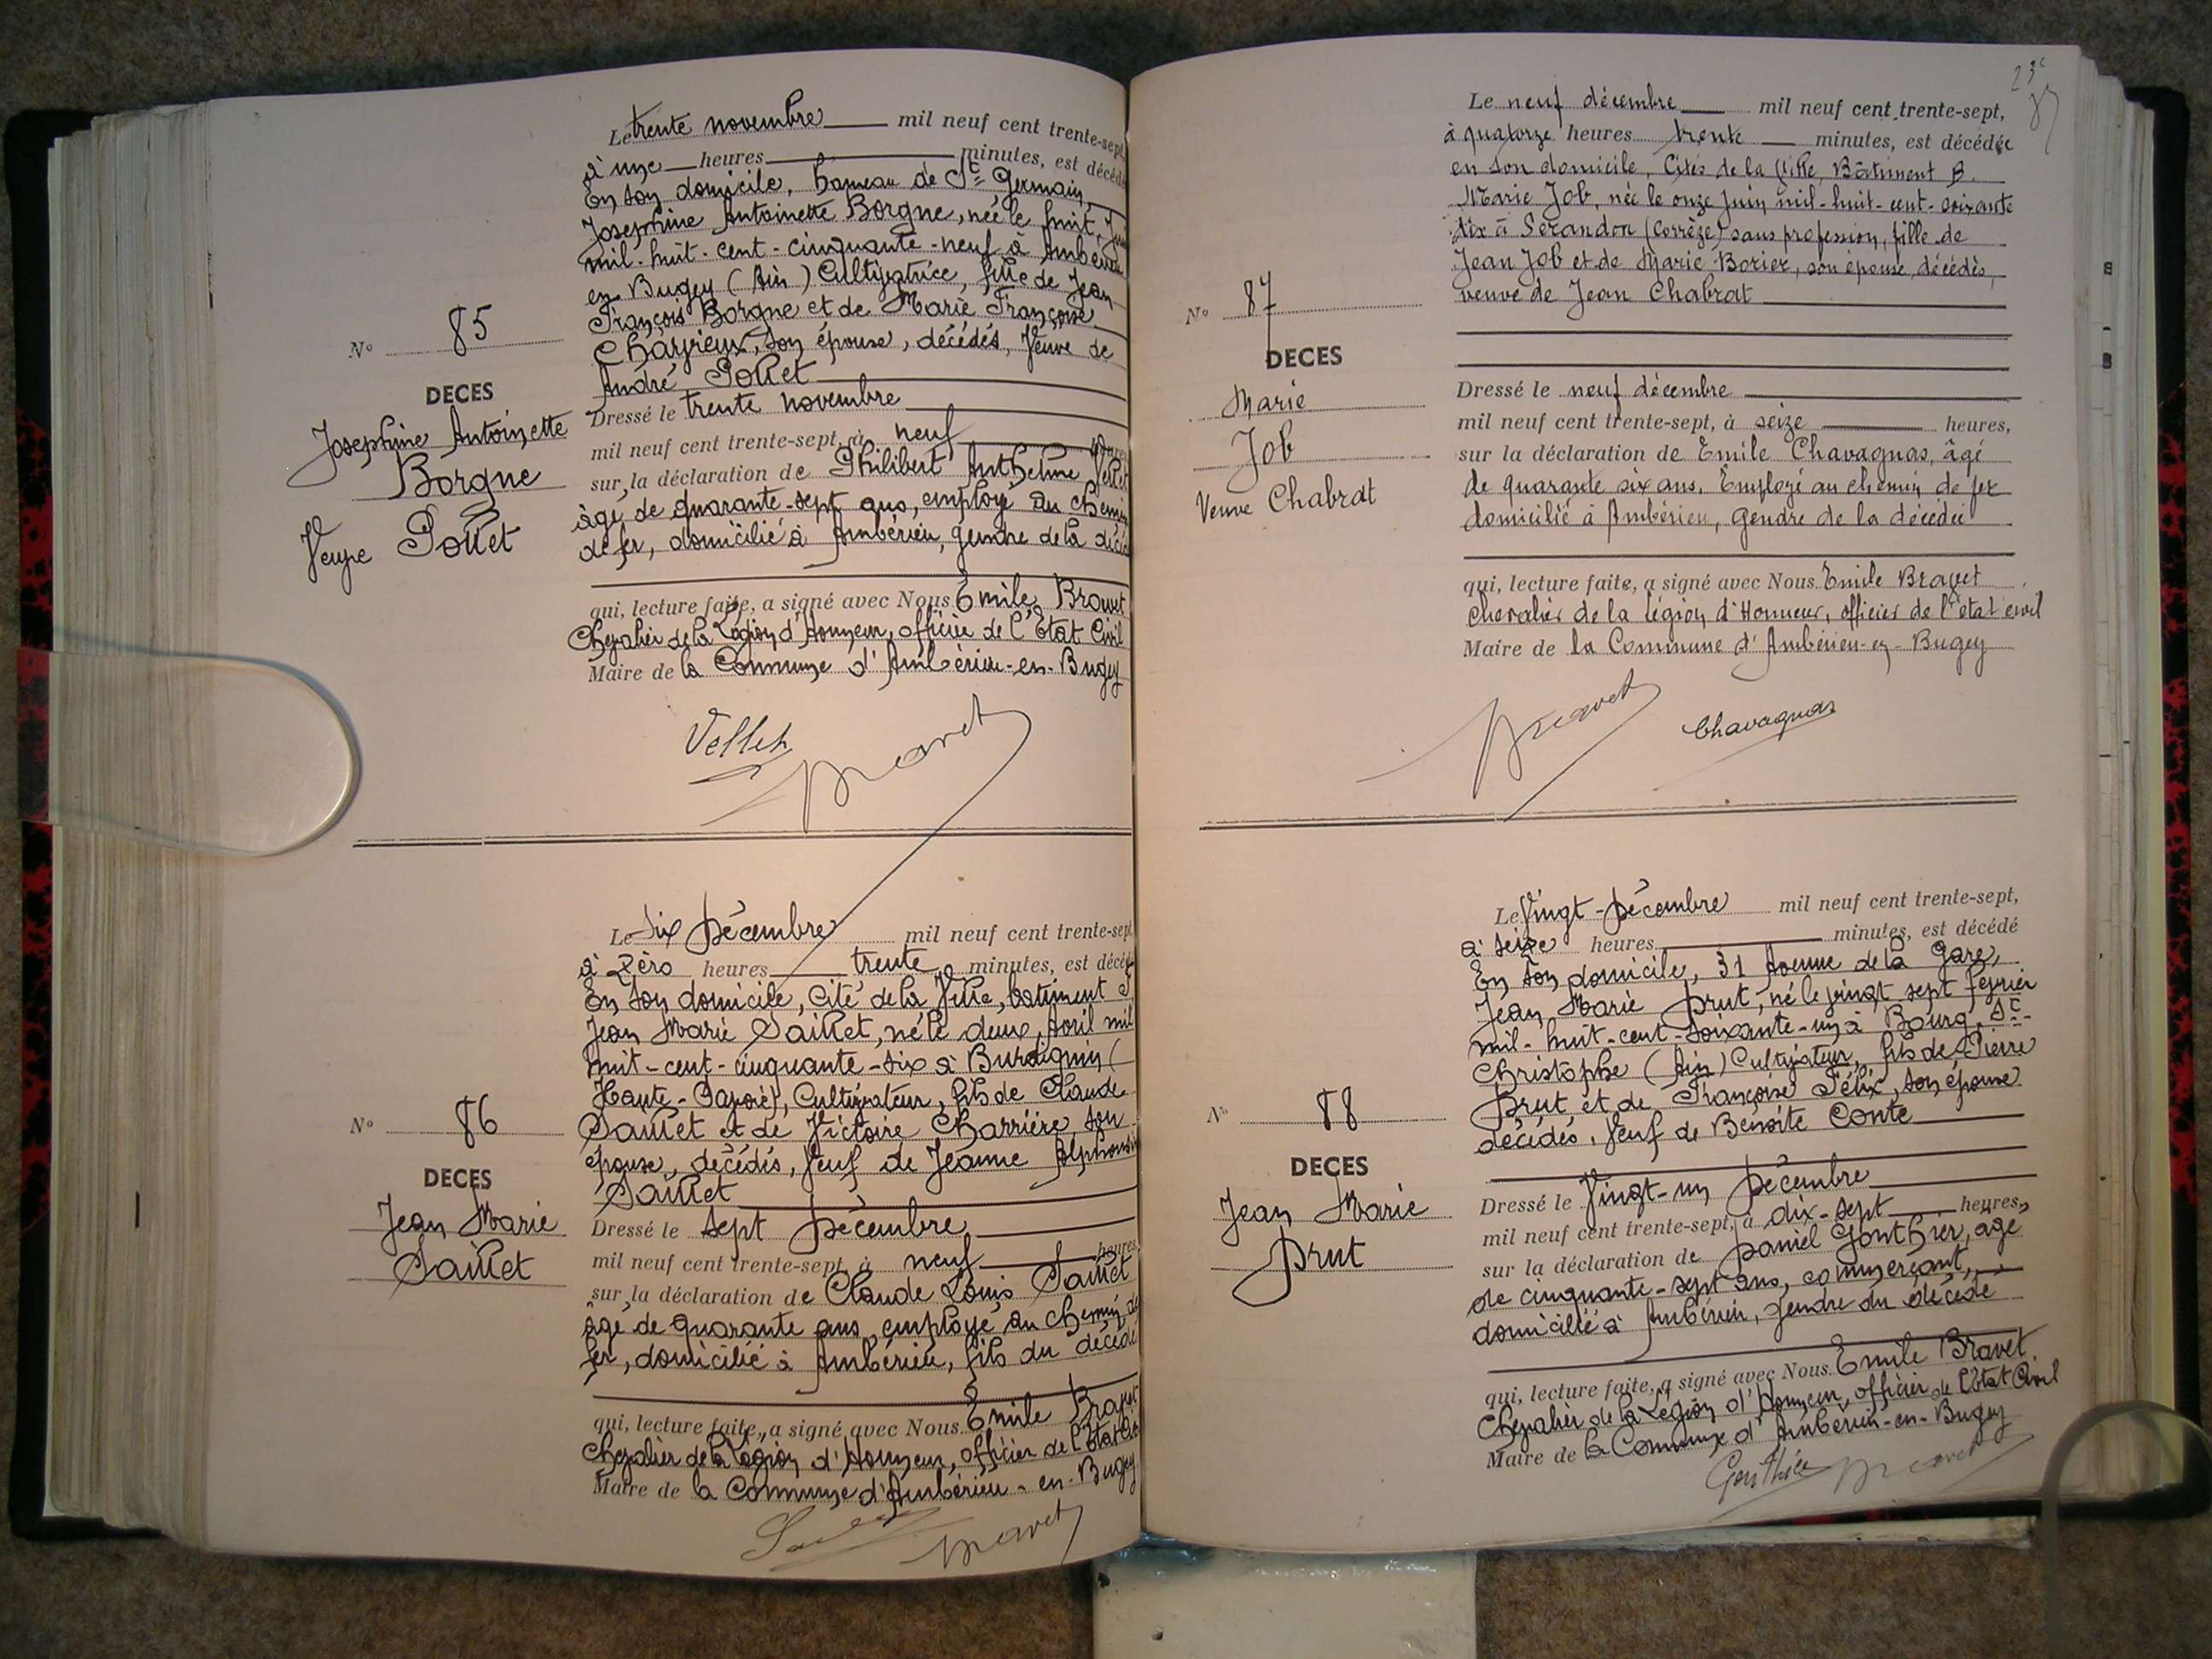 N° 85
DECES
Josephine Antoinette
Borgne
Veuve Pollet
Le trente novembre mil neuf cent trente-sept,
à une heures minutes, est décédé
En son domicile, hameau de St Germain,
Josephine Antoinette Borgne, née le huit,
mil-huit-cent-cinquante-neuf à Ambérieu
en Bugey (Ain) Cultivatrice, fille de Jean
François Borgne et de Marie Françoise
Charrieux, son épouse, décédés, Veuve de
André Pollet
Dressé le trente novembre
mil neuf cent trente-sept, à neuf heures
sur la déclaration de Philibert Anthelme Vellet
âgé de quarante-sept ans, employé au chemin
de fer, domicilié à Ambérieu, gendre de la
qui, lecture faite, a signé avec Nous Emile Bravet
Chevalier de la Légion d'Honneur, officier de l'Etat Civil
Maire de la Commune d'Ambérieu-en-Bugey
Vellet Bravet
N° 86
DECES
Jean Marie
Saillet
Le Six Décembre mil neuf cent trente-sept,
à Zéro heures trente minutes, est décédé
En son domicile, Cité de la Ville, batiment
Jean Marie Saillet, né le deux Avril mil
huit-cent-cinquante-six à Burdignin (
Haute-Savoie), Cultivateur, fils de Claude
Saillet et de Victoire Charrière, son
épouse, décédés, Veuf de Jeanne Alphonsine
Saillet
Dressé le sept Décembre
mil neuf cent trente-sept, à neuf heures
sur la déclaration de Claude Louis Saillet
âgé de quarante ans, employé au chemin de
fer, domicilié à Ambérieu, fils du décédé
qui, lecture faite, a signé avec Nous Emile Bravet
Chevalier de la Légion d'Honneur, officier de l'Etat Civil
Maire de la Commune d'Ambérieu-en-Bugey
Bravet
N° 87
DECES
Marie
Job
Veuve Chabrat
Le neuf décembre mil neuf cent trente-sept,
à quatorze heures trente minutes, est décédée
en son domicile, Cités de la Ville, Bâtiment B.
Marie Job, née le onze Juin mil-huit-cent-soixante
dix à Sérandon (Corrèze) sans profession, fille de
Jean Job et de Marie Borier, son épouse, décédés,
veuve de Jean Chabrat
Dressé le neuf décembre
mil neuf cent trente-sept, à seize heures,
sur la déclaration de Emile Chavagnas, âgé
de quarante six ans, Employé au chemin de fer
domicilié à Ambérieu, gendre de la décédée
qui, lecture faite, a signé avec Nous Emile Bravet
Chevalier de la Légion d'Honneur, officier de l'état civil
Maire de la Commune d'Ambérieu-en-Bugey
Bravet Chavagnas
N° 88
DECES
Jean Marie
Prut
Le Vingt-Décembre mil neuf cent trente-sept,
à seize heures minutes, est décédé
En son domicile, 31 Avenue de la Gare,
Jean Marie Prut, né le vingt sept février
mil-huit-cent-soixante-un à Bourg, St-
Christophe (Ain) Cultivateur, fils de Pierre
Prut et de Françoise Félix, son épouse
décédés, Veuf de Benoîte Conte
Dressé le Vingt-un Décembre
mil neuf cent trente-sept, à dix-sept heures,
sur la déclaration de Daniel Gonthier, âgé
de cinquante-sept ans, commerçant,
domicilié à Ambérieu, gendre du décédé
qui, lecture faite, a signé avec Nous Emile Bravet
Chevalier de la Légion d'Honneur, officier de l'Etat Civil
Maire de la Commune d'Ambérieu-en-Bugey
Gonthier Bravet